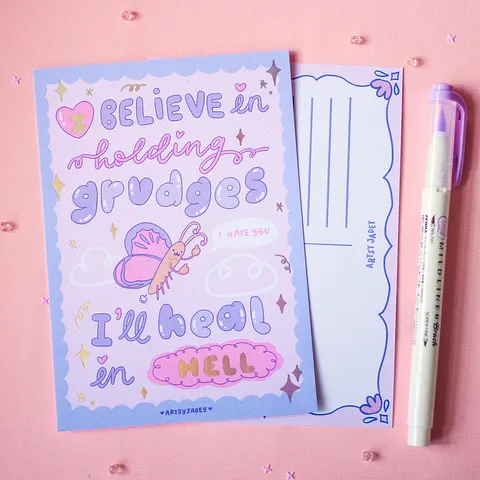 I BELIEVE in
holding
grudges
I HATE YOU
I'll heal
in HELL
ARTSYJADEY
ARTSY JADEY
ZEBRA MILDLINER Brush